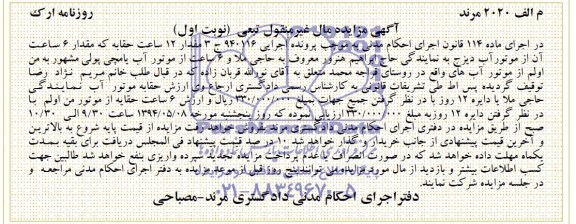 م الف ۲۰۲۰ مرند
روزنامه ارک
آگهی مزایده مال غیرمنقول تبعی (نوبت اول)
در اجرای ماده ۱۱۴ قانون اجرای احکام مدنی و بموجب پرونده اجرایی ۹۴۰۱۱۶ ح ۳ مقدار ۱۲ ساعت حقابه که مقدار ۶ ساعت
آن از موتور آب دیزج به نمایندگی حاج ابراهیم هنرور معروف به حاجی ملا و ۶ ساعت از موتور آب یامچی پولی مشهور به من
اولم از موتور آب های واقع در روستای قوجه محمد متعلق به آقای نوراله قربان زاده که در قبال طلب خانم مریم نژاد رضا
توقیف گردیده پس از طی تشریفات قانونی به کارشناس رسمی دادگستری ارجاع وی ارزش حقابه موتور آب نمایندگی
حاجی ملا با دایره ۱۲ روز با در نظر گرفتن جمیع جهات بمبلغ ریال و ارزش ۶ ساعت حقابه از موتور من اولم با
در نظر گرفتن دایره ۱۲ روزبه مبلغ ۳۳۰/۰۰۰/۰۰۰ ارزیابی نموده که روز پنجشنبه مورخه ۱۳۹۴/۰۵/۰۸ ساعت ۹/۳۰ الی ۱۰/۳۰
صبح از طریق مزایده در دفتر اجرای احکام مدنی دادگستری مرند بفروش خواهد رفت مزایده از قیمت پایه شروع به بالاترین
و آخرین قیمت پیشنهادی از جانب خریدار واگذار خواهد شد ۱۰ در صد قیمت پیشنهاد فی المجلس دریافت برای بقیه بمدت
یکماه مهلت داده خواهد شد که در صورت انصراف یا عدم پرداخت مزایده تجدید سپرده واریزی بنفع خواهد شد طالبین جهت
کسب اطلاعات بیشتر و بازدید از مال مورد مزایده می توانند پنج روز قبل از موعد مزایده به دفتر اجرای احکام مدنی مراجعه و
در جلسه مزایده شرکت نمایند.
۰۲۱-۸۸۳۴۹۶۷۰-۵
دفتراجرای احکام مدنی دادگستری مرند-مصباحی